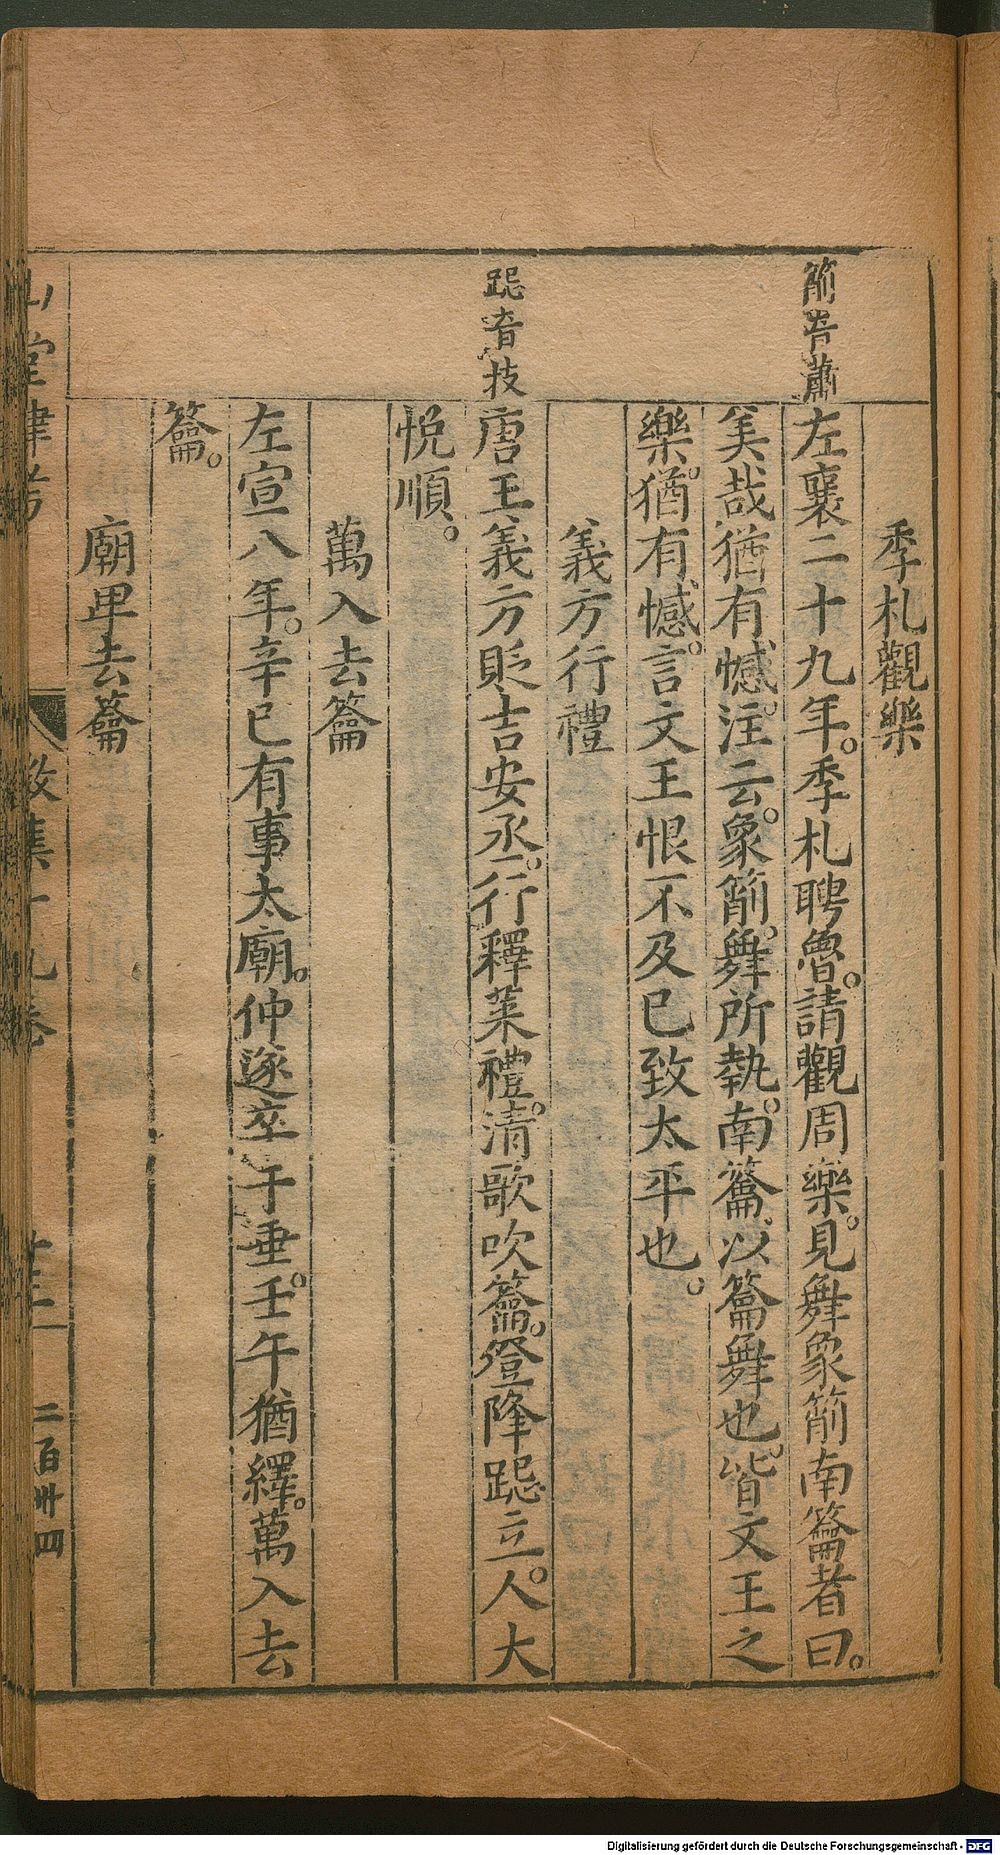 季札觀樂
箾音蕭
左襄二十九年。季札聘魯。請觀周樂。見舞象箾南籥者曰。
美哉猶有憾。注云。象箾。舞所執。南籥。以籥舞也。皆文王之
樂。猶有憾。言文王恨不及已致太平也。
義方行禮
跽音技
唐王義方貶吉安丞。行釋菜禮。清歌吹籥。登降跽立。人大
悅順。
萬入去籥
左宣八年。辛巳有事太廟。仲遂卒于垂。壬午猶繹。萬入去
籥。
廟卑去籥
山堂肆考
徵集十九卷
二百卌四
Digitalisierung gefördert durch die Deutsche Forschungsgemeinschaft - DFG